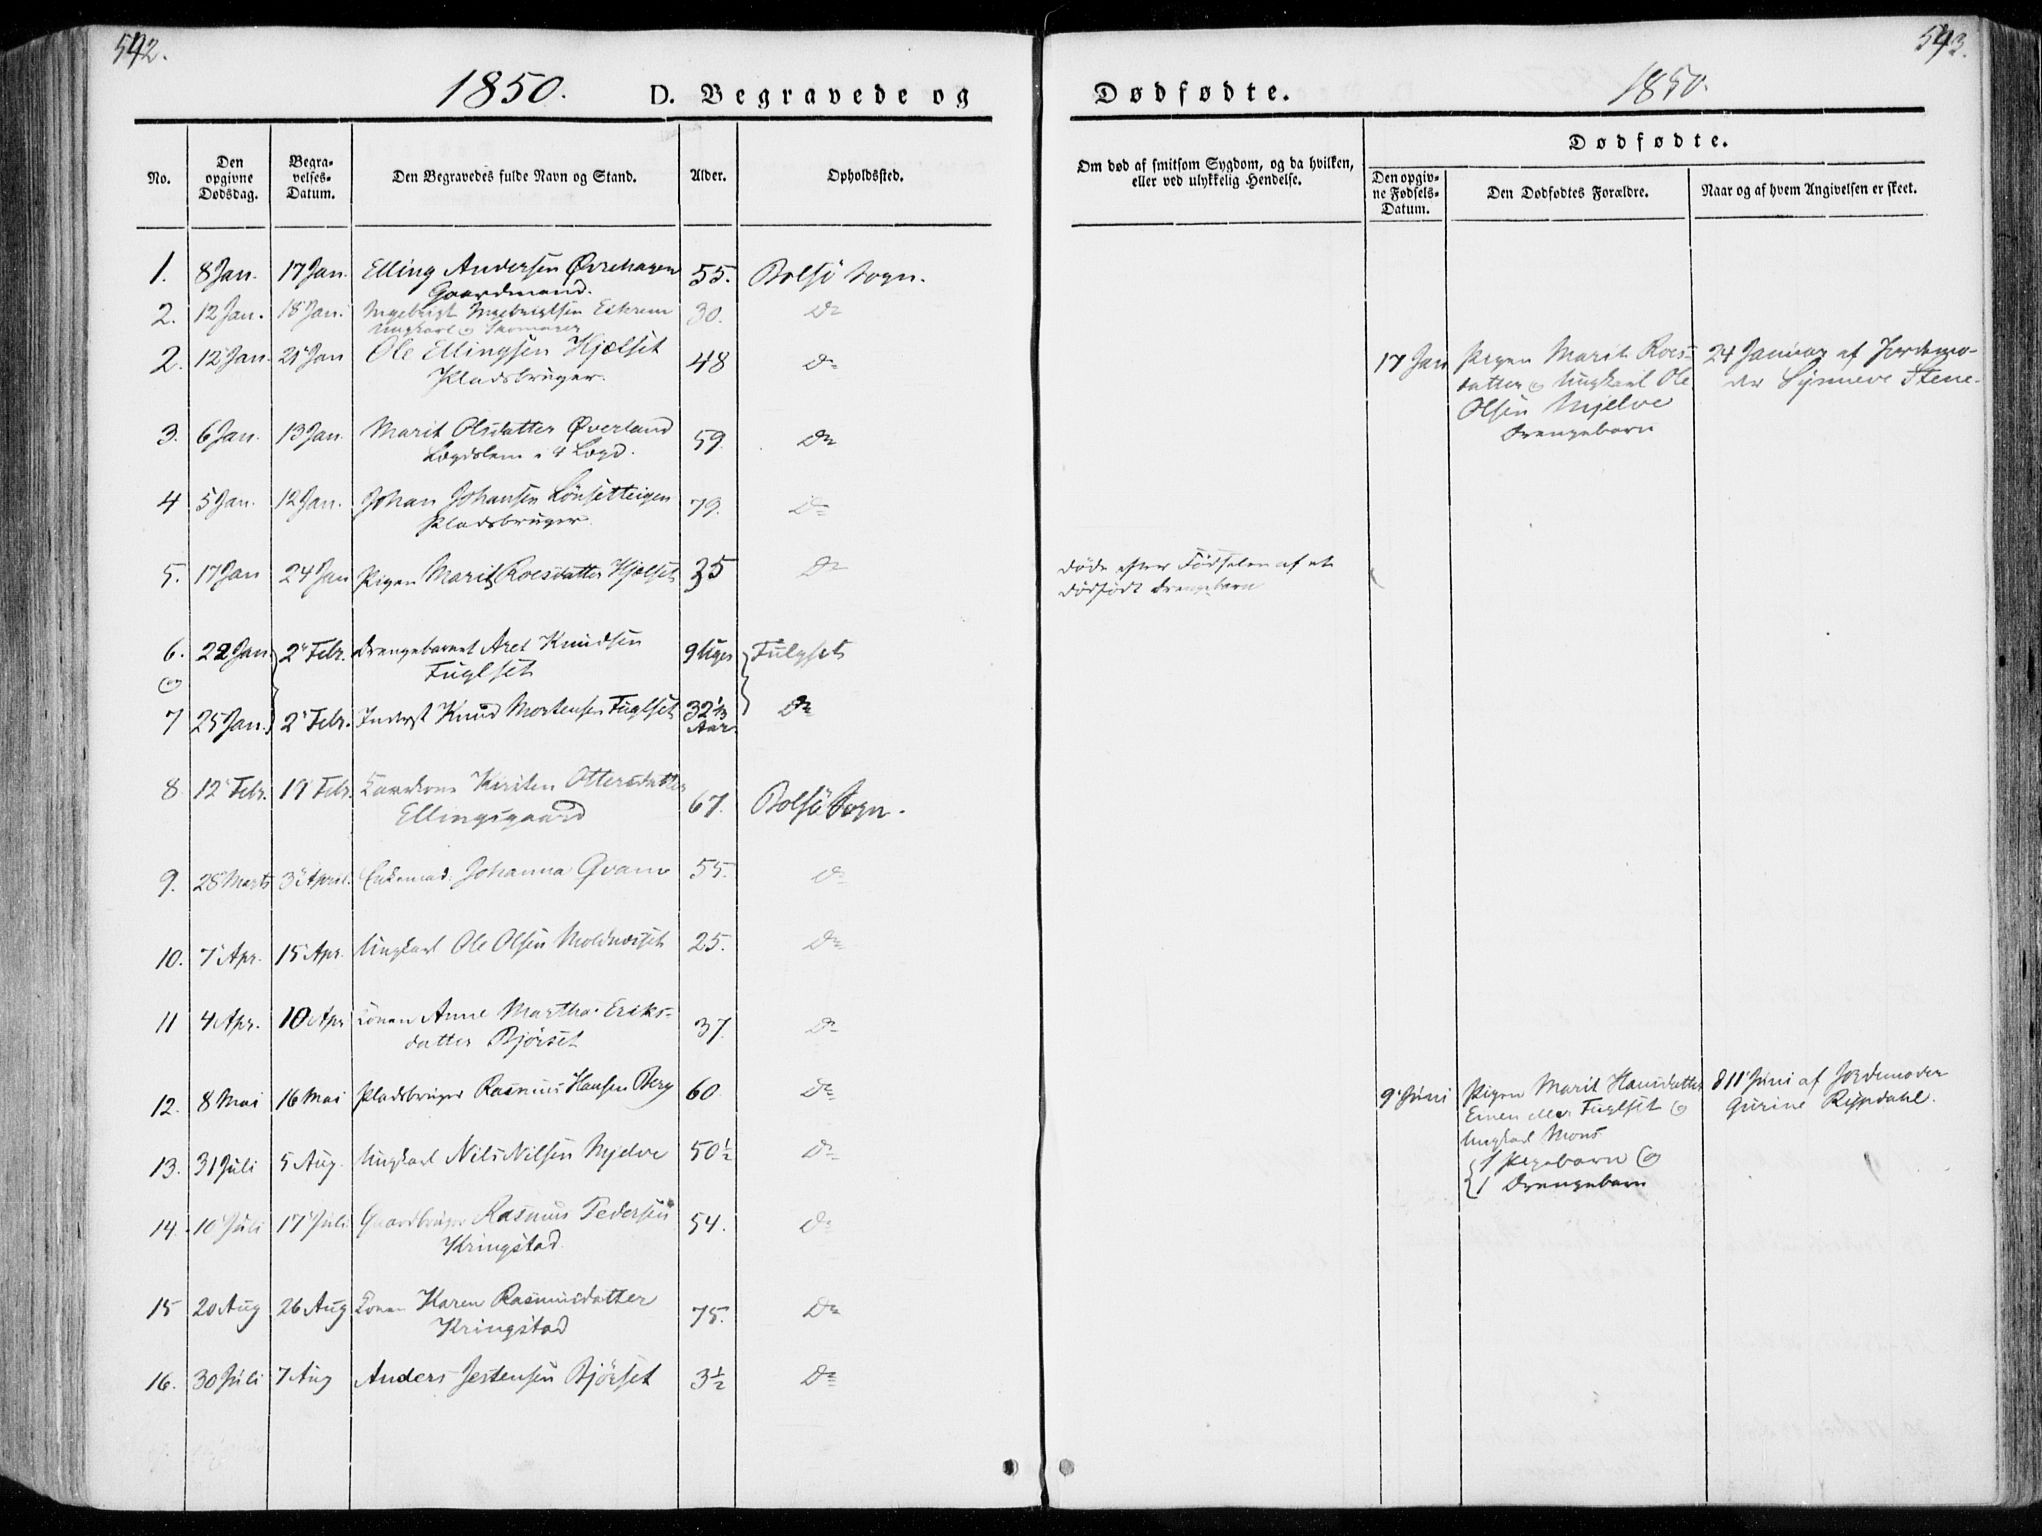 542.
1850.
D. Begravede og
No.
Den opgivne Dødsdag.
Begravelses-Datum.
Den Begravedes fulde Navn og Stand.
Alder.
Opholdssted.
1. 8 Jan. 17 Jan. Elling Andersen Øvrehagen 55. Bolsø Sogn.
Gaardmand.
2. 12 Jan. 18 Jan. Ingebrigt Ingebrigtsen Eikrem 30. Do
Ungkarl &
2. 12 Jan. 21 Jan Ole Ellingsen Hjelset 48 Do
Pladsbruger.
3. 6 Jan. 13 Jan. Marit Olsdatter Øverland 59. Do
Lægdslem i 4 Lægd.
4 5 Jan. 12 Jan. Johan Johansen Lønsetteigen 79. Do
Pladsbruger.
5. 17 Jan 24 Jan Pigen Marit Roesdatter Hjelset 35 Do
6. 22 Jan. 2 Febr. Drengebarnet Aret Knudsen 9 Uger Fulgset
& Fuglset
7 25 Jan. 2 Febr. Inderst Knud Mortensen Fuglset 32 1/3 Aar. Do
8 12 Febr. 19 Febr. Kirsten Ottersdatter 67. Bolsø Sogn.
Ellingsgaard
9. 28 Marts 3 April. Johanna Qvam 55. Do
10. 7 Apr. 15 Apr. Ungkarl Ole Olsen Moldnæsset 25. Do
11 4 Apr. 10 Apr Konen Anne Martha Eriks-
datter Bjørset 37. Do
12. 8 Mai 16 Mai Pladsbruger Rasmus Hansen Berg 60 Do
13. 31 Juli 5 Aug. Ungkarl Nils Nilsen Mjelve 50 1/2 Do
14. 10 Juli 17 Juli Gaardbruger Rasmus Pedersen 54. Do
Kringstad
15 20 Aug 26 Aug Konen Karen Rasmusdatter 75. Do
Kringstad
16. 30 Juli 7 Aug Anders Jestensen Bjørset 3 1/2 Do
543.
Dødfødte.
1850.
Om død af smitsom Sygdom, og da hvilken,
eller ved ulykkelig Hendelse.
Dødfødte.
Den opgivne Fødsels-Datum.
Den Dødfødtes Forældre.
Naar og af hvem Angivelsen er skeet.
17 Jan Pigen Marit Roes- 24 Januar af Jordemo-
datter & Ungkarl Ole der Synneve Stene.
Olsen Mjelve
Drengebarn
Døde efter Fødselen af et
dødfødt Drengebarn
9 Juni Pigen Marit Hansdatter d 11 Juni af Jordemoder
Emen eller Fuglset & Gurine
Ungkarl Mons
1 Pigebarn &
1 Drengebarn